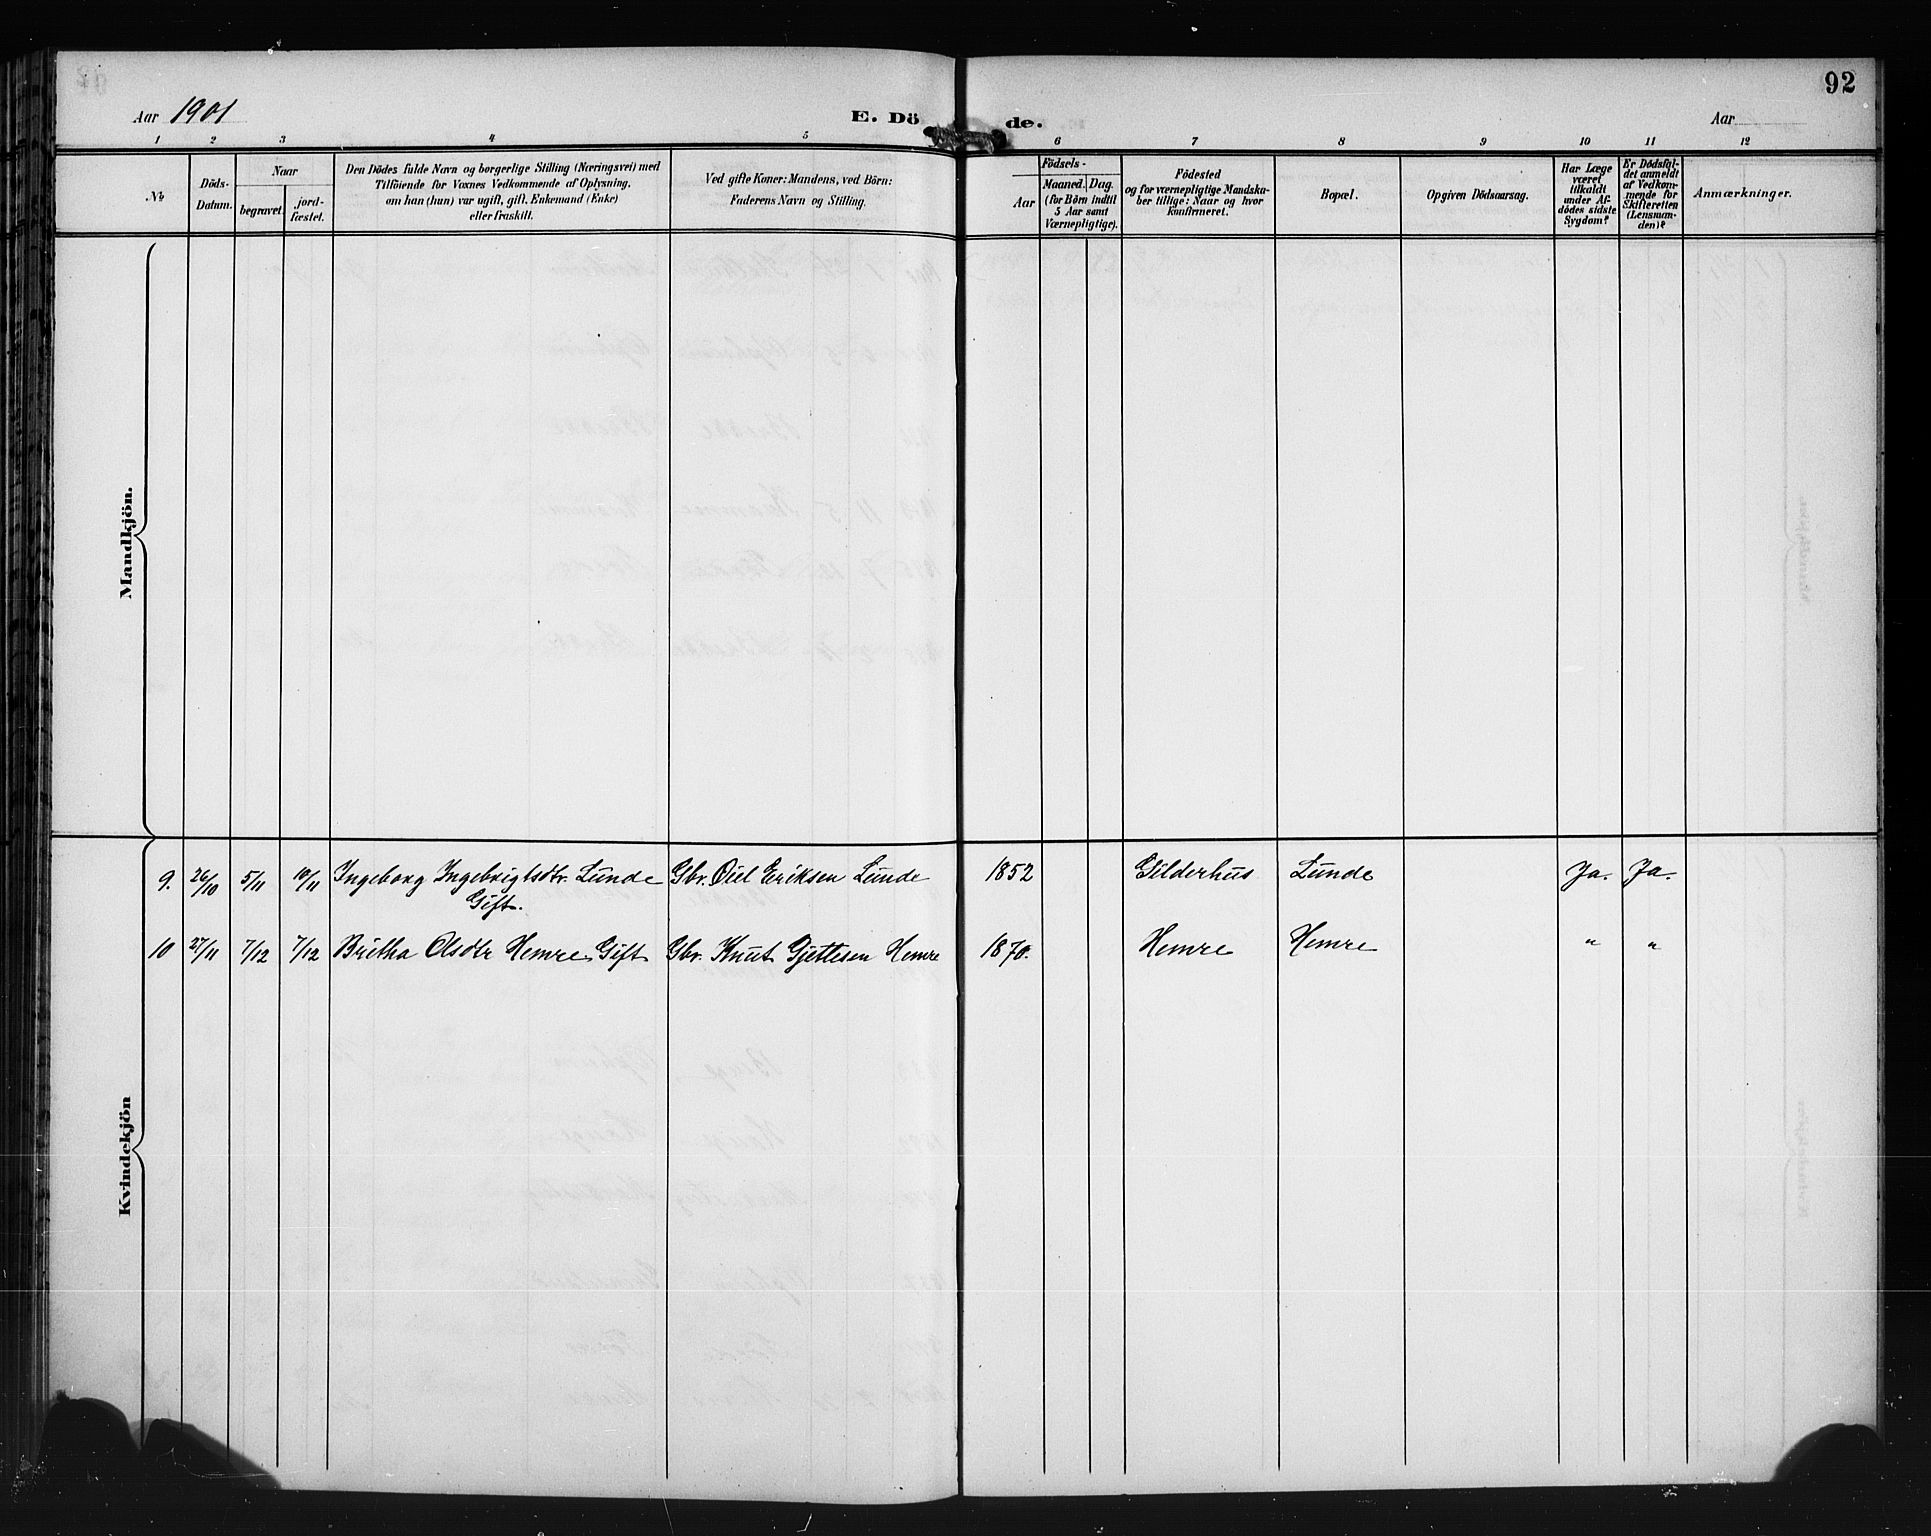 92
Aar 1901
E. Döde.
Aar
1 2 3 4 5 6 7 8 9 10 11 12
No
Döds-
Datum.
Naar
begravet.
jord-
fæstet.
Den Dödes fulde Navn og borgerlige Stilling (Næringsvei) med
Tilföiende for Voxnes Vedkommende af Oplysning,
om han (hun) var ugift, gift, Enkemand (Enke)
eller fraskilt.
Ved gifte Koner: Mandens, ved Börn:
Faderens Navn og Stilling.
Födsels-
Aar
Maaned. Dag.
(for Börn indtil
5 Aar samt
Værnepligtige).
Födested
og for værnepligtige Mandska-
ber tillige: Naar og hvor
konfirmeret.
Bopæl.
Opgiven Dödsaarsag.
Har Læge
været
tilkaldt
under Af-
dödes sidste
Sygdom?
Er Dödsfal-
det anmeldt
af Vedkom-
mende for
Skifteretten
(Lensman-
den)?
Anmærkninger.
Mandkjön.
Kvindekjön
9. 26/10 5/11 10/11 Ingeborg Ingebrigtsdtr. Lunde Gbr. Oül Eriksen Lunde 1852 Gilderhus Lunde Ja. Ja.
Gift.
10 27/11 7/12 7/12 Britha Olsdtr Hemre Gift Gbr. Knut Gjetlesen Hemre 1870. Hemre Hemre " "